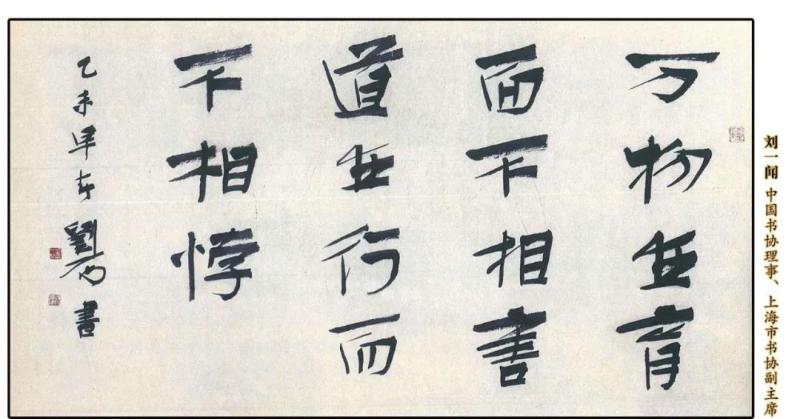 万物並育
而不相害
道並行而
不相悖
乙未早春 劉一聞 書
刘一闻 中国书协理事、上海市书协副主席